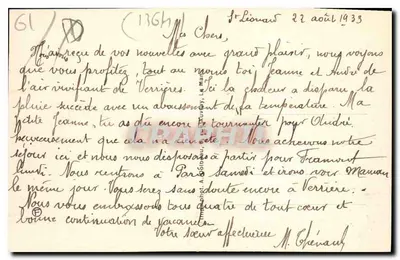 61
(1364)
St Léonard 22 août 1933
Mes Chers,
J'ai reçu de vos nouvelles avec grand plaisir, nous voyons
que vous profitez, tout au moins toi, Jeanne et André de
l'air vivifiant de Verrières. Ici la chaleur a disparu la
pluie succède avec un abaissement de la température. Ma
petite Jeanne, tu as dû encore te tourmenter pour André
heureusement que cela n'a rien été. Vous achevons notre
séjour ici et nous nous disposons à partir pour Framont
lundi. Nous rentrons à Paris samedi et irons voir Maman
le même jour. Vous serez sans doute encore à Verrières.
Nous vous embrassons tous quatre de tout cœur et
bonne continuation de vacances
Votre sœur affectionnée
M. Thénault